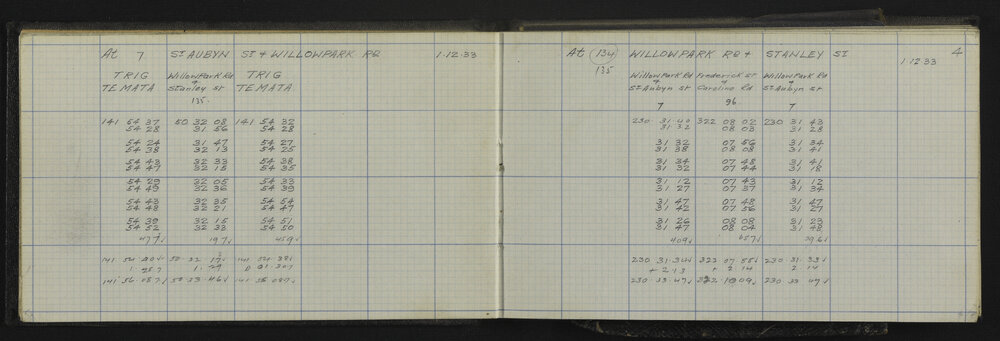 At 7 ST AUBYN ST & WILLOWPARK RD 1.12.33
TRIG Willow Park Rd TRIG
TE MATA & Stanley St TE MATA
135.
141 54 37 50 32 08 141 54 32
54 28 31 56 54 28
54 24 31 47 54 27
54 38 32 13 54 25
54 43 32 33 54 38
54 47 32 15 54 35
54 29 32 05 54 33
54 49 32 36 54 39
54 43 32 35 54 54
54 48 32 21 54 47
54 39 32 15 54 51
54 52 32 33 54 50
477 197 459
141 54 40 50 32 17 141 54 38
141 56 50 33 46 141 56
4
At 134 WILLOWPARK RD & STANLEY ST 1.12.33
135
Willow Park Rd Frederick St Willow Park Rd
& St Aubyn St & Caroline Rd & St Aubyn St
7 96 7
230 31 40 322 08 02 230 31 43
31 32 08 03 31 28
31 32 07 56 31 34
31 38 08 08 31 41
31 34 07 48 31 41
31 32 07 44 31 18
31 12 07 43 31 12
31 27 07 37 31 34
31 47 07 48 31 47
31 42 07 56 31 27
31 26 08 08 31 23
31 47 08 04 31 48
409 657 396
230 31 34 322 07 55 230 31 33
+ 2 13 + 2 14 2 14
230 33 47 322 10 09 230 33 47